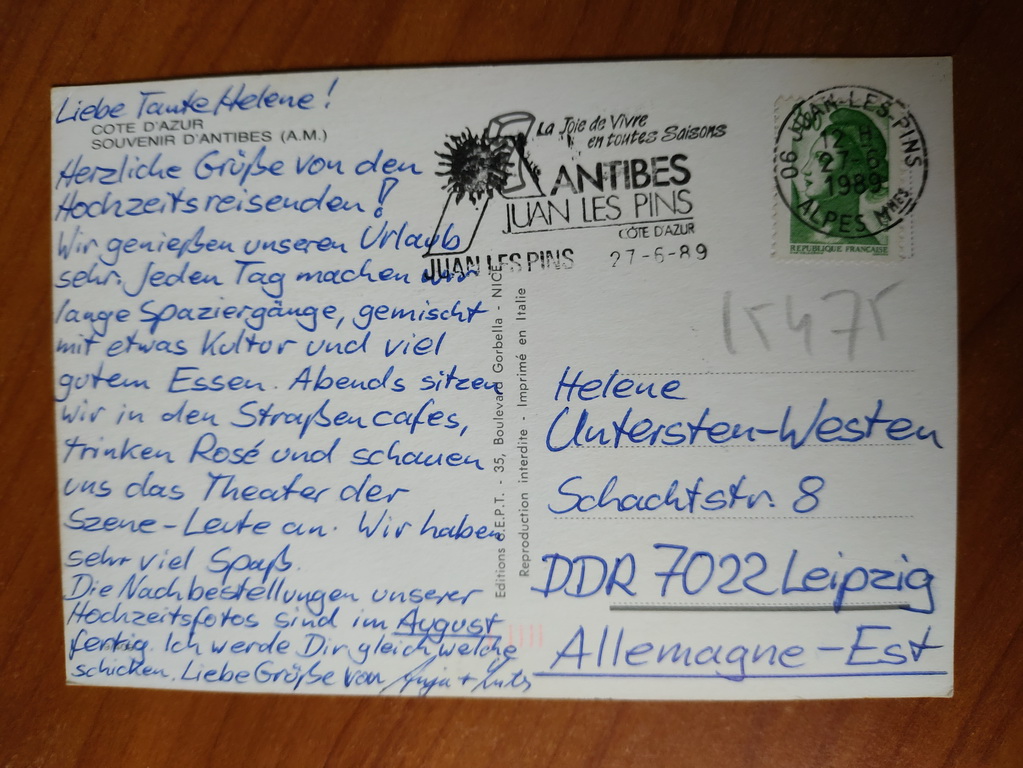 Liebe Tante Helene!
COTE D'AZUR
SOUVENIR D'ANTIBES (A.M.)
Herzliche Grüße von den
Hochzeitsreisenden!
Wir genießen unseren Urlaub
sehr. Jeden Tag machen wir
lange Spaziergänge, gemischt
mit etwas Kultur und viel
gutem Essen. Abends sitzen
wir in den Straßencafes,
trinken Rosé und schauen
uns das Theater der
Szene-Leute an. Wir haben
sehr viel Spaß.
Die Nachbestellungen unserer
Hochzeitsfotos sind im August
fertig. Ich werde Dir gleich welche
schicken. Liebe Grüße von Anja +
La Joie de Vivre
en toutes Saisons
ANTIBES
JUAN LES PINS
CÔTE D'AZUR
JUAN LES PINS 27-6-89
06 JUAN-LES-PINS
12 H
27-6
1989
ALPES MMES
REPUBLIQUE FRANCAISE
Editions G.E.P.T. - 35, Boulevard Gorbella - NICE
Reproduction interdite - Imprimé en Italie
15475
Helene
Untersten-Westen
Schachtstr. 8
DDR 7022 Leipzig
Allemagne-Est